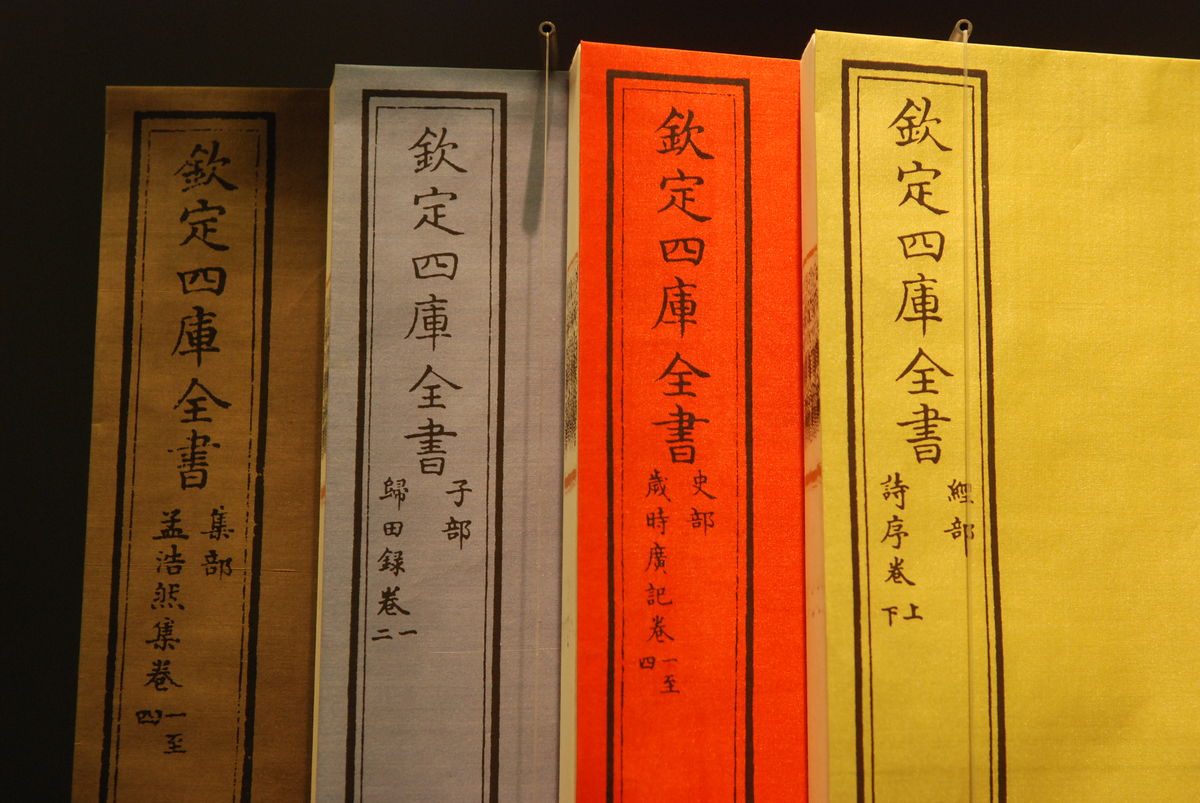 欽定四庫全書
經部
詩序卷上下
欽定四庫全書
史部
歲時廣記卷一至四
欽定四庫全書
子部
歸田録卷一二
欽定四庫全書
集部
孟浩然集卷一至四